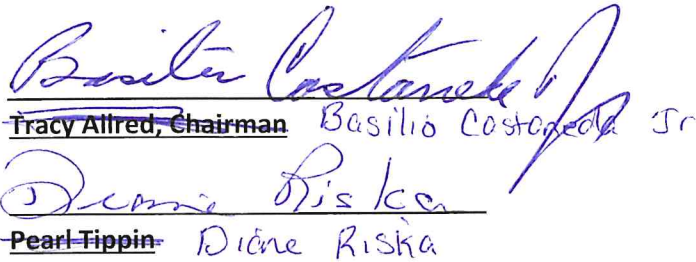 Basilio Castaneda Jr
Tracy Allred, Chairman Basilio Castaneda Jr
Diane Riska
Pearl Tippin Diane Riska